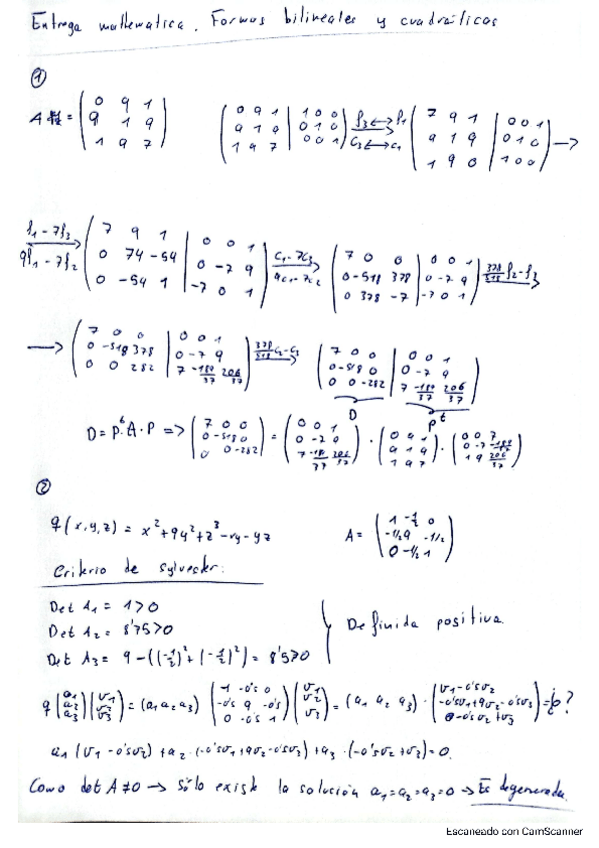 Entrega mathematica. Formas bilineales y cuadráticas
①
A = (0 9 1; 9 1 9; 1 9 7) (0 9 1 | 1 0 0; 9 1 9 | 0 1 0; 1 9 7 | 0 0 1) f3↔f1 C3↔C1 (7 9 1 | 0 0 1; 9 1 9 | 0 1 0; 1 9 0 | 1 0 0) →
f1-7f3 9f1-7f2 (7 9 1 | 0 0 1; 0 74 -54 | 0 -7 9; 0 -54 1 | -7 0 1) C1-7C3 9C1-7C2 (7 0 0 | 0 0 1; 0 -518 378 | 0 -7 9; 0 378 -7 | -7 0 1) 378/518 f2-f3
→ (7 0 0 | 0 0 1; 0 -518 378 | 0 -7 9; 0 0 282 | 7 -189/37 206/37) 378/518 C2-C3 (7 0 0 | 0 0 1; 0 -518 0 | 0 -7 9; 0 0 -282 | 7 -189/37 206/37)
D P^t
D = P^t·A·P => (7 0 0; 0 -518 0; 0 0 -282) = (0 0 1; 0 -7 0; 7 -189/37 206/37) · (0 9 1; 9 1 9; 1 9 7) · (0 0 7; 0 -7 -189/37; 1 9 206/37)
②
q(x,y,z) = x²+9y²+z³-xy-yz A = (1 -½ 0; -1/2 9 -1/2; 0 -1/2 1)
Criterio de sylvester:
Det A1 = 1>0
Det A2 = 8'75>0
Definida positiva.
Det A3 = 9-((-½)²+(-½)²) = 8'5>0
q (a1; a2; a3)(v1; v2; v3) = (a1 a2 a3) (1 -0'5 0; -0'5 9 -0'5; 0 -0'5 1)(v1; v2; v3) = (a1 a2 a3) · (v1-0'5v2; -0'5v1+9v2-0'5v3; 0-0'5v2+v3) = ¿0?
a1(v1-0'5v2)+a2·(-0'5v1+9v2-0'5v3)+a3·(-0'5v2+v3)=0.
Como det A≠0 → sólo existe la solución a1=a2=a3=0 → Es degenerada.
Escaneado con CamScanner